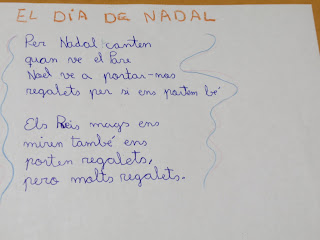 EL DÍA DE NADAL
Per Nadal canten
quan ve el Pare
Noel ve a portar-nos
regalets per si ens portem bé
Els Reis mags ens
miren també ens
porten regalets,
pero molts regalets.